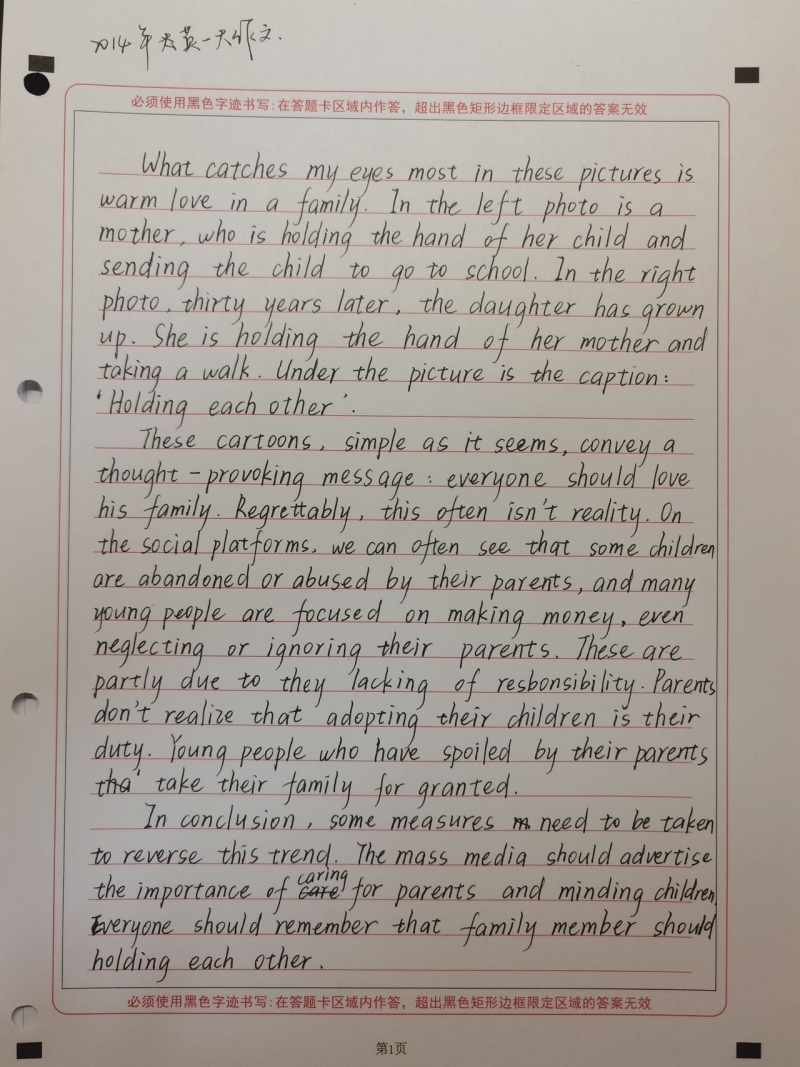 2014年大英一大作文.
必须使用黑色字迹书写:在答题卡区域内作答，超出黑色矩形边框限定区域的答案无效
What catches my eyes most in these pictures is
warm love in a family. In the left photo is a
mother, who is holding the hand of her child and
sending the child to go to school. In the right
photo, thirty years later, the daughter has grown
up. She is holding the hand of her mother and
taking a walk. Under the picture is the caption:
'Holding each other'.
These cartoons, simple as it seems, convey a
thought-provoking message: everyone should love
his family. Regrettably, this often isn't reality. On
the social platforms, we can often see that some children
are abandoned or abused by their parents, and many
young people are focused on making money, even
neglecting or ignoring their parents. These are
partly due to they lacking of resbonsibility. Parents
don't realize that adopting their children is their
duty. Young people who have spoiled by their parents
take their family for granted.
In conclusion, some measures need to be taken
to reverse this trend. The mass media should advertise
the importance of caring for parents and minding children.
Everyone should remember that family member should
holding each other.
必须使用黑色字迹书写:在答题卡区域内作答，超出黑色矩形边框限定区域的答案无效
第1页